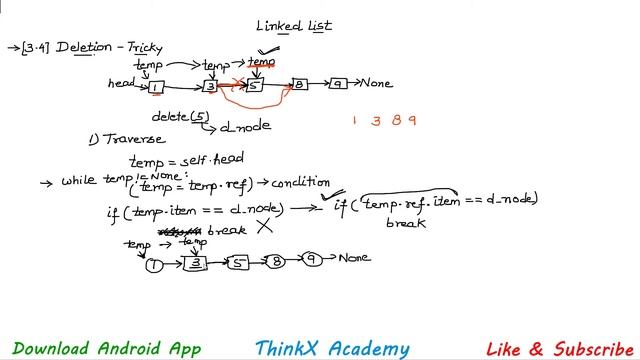 Linked List
→[3.4] Deletion - Tricky
temp → temp → temp
head → 1 → 3 → 5 → 8 → 9 → None
delete(5)
→ d_node
1 3 8 9
1) Traverse
temp = self.head
→ while temp != None:
(temp = temp.ref) → condition
if (temp.item == d_node) → if (temp.ref.item == d_node)
break X
break
temp → temp
1 → 3 → 5 → 8 → 9 → None
Download Android App
ThinkX Academy
Like & Subscribe